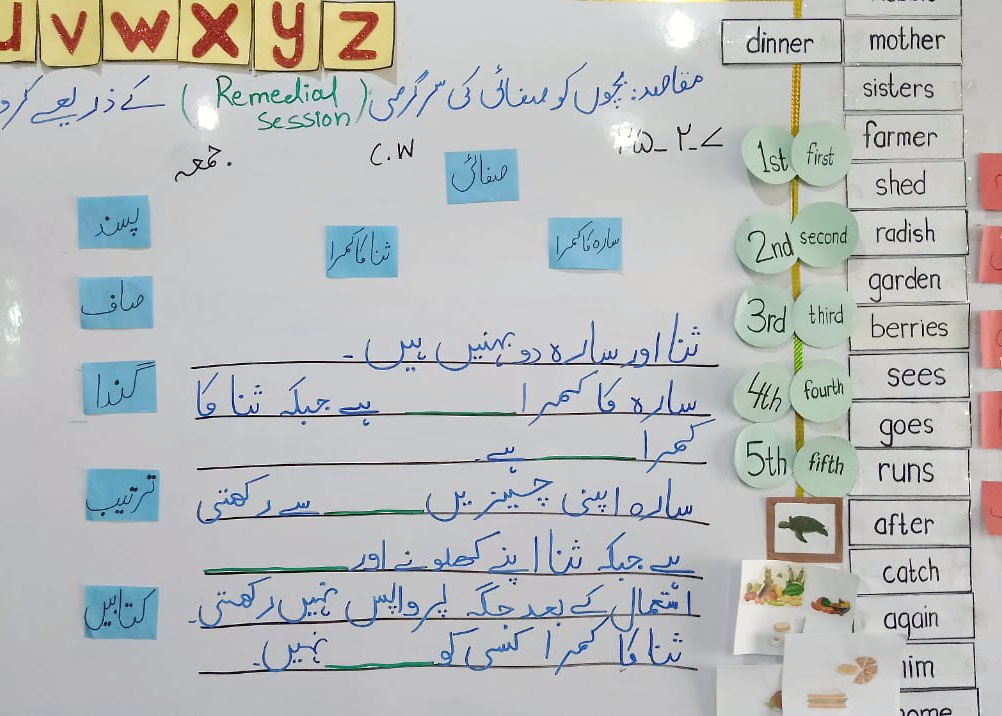 u v w x y z
مقاصد: بچوں کو صفائی کی سرگرمی (Remedial session) کے ذریعے
جمعہ
C.W
صفائی
سارہ کا کمرا
ثنا کا کمرا
پسند
صاف
گندا
ترتیب
کتابیں
ثنا اور سارہ دو بہنیں ہیں ۔
سارہ کا کمرا ________ ہے جبکہ ثنا کا
کمرا ________ ہے
سارہ اپنی چیزیں ________ سے رکھتی
ہے جبکہ ثنا اپنے کھلونے اور ________
استمال کے بعد جگہ پر واپس نہیں رکھتی۔
ثنا کا کمرا کسی کو ________ نہیں۔
1st first
2nd second
3rd third
4th fourth
5th fifth
dinner
mother
sisters
farmer
shed
radish
garden
berries
sees
goes
runs
after
catch
again
him